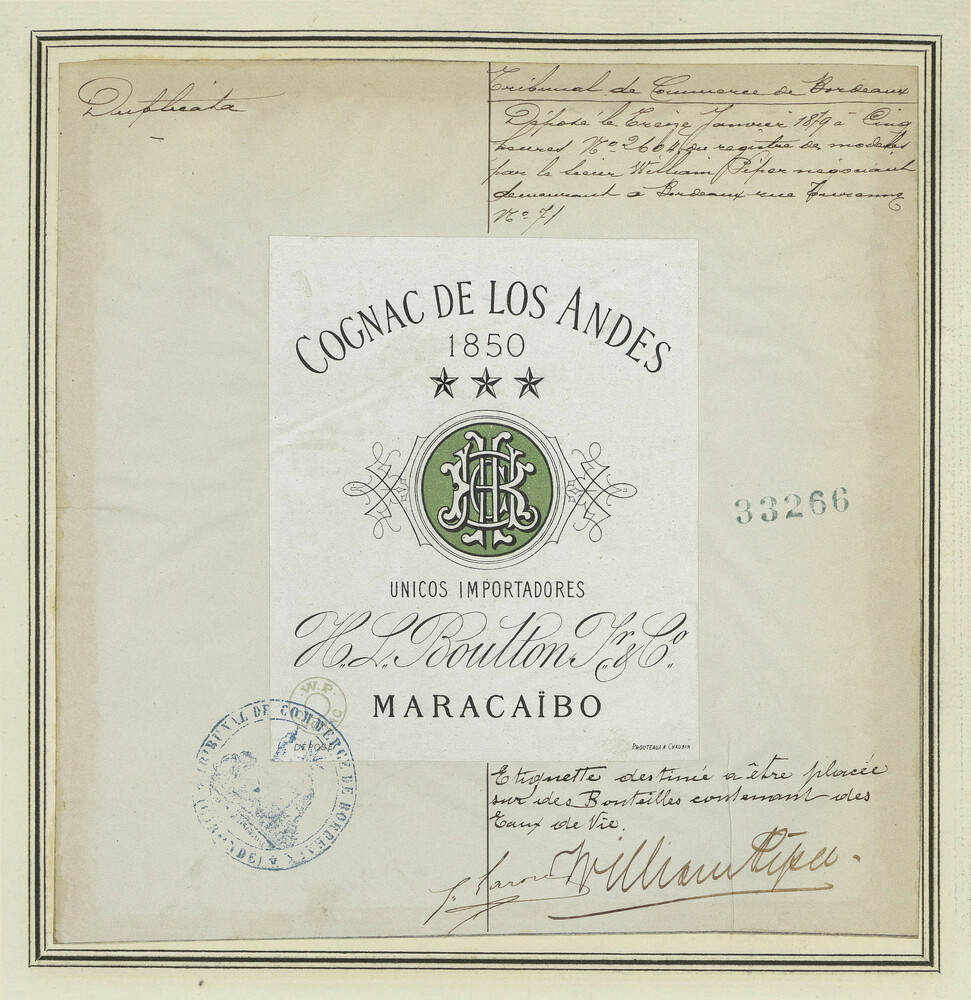 Duplicata
Tribunal de Commerce de Bordeaux
Déposé le Treize Janvier 1879 à Cinq
heures Nº 2604 du registre de modèles
par le sieur William Piper négociant
demeurant a Bordeaux rue Turenne
Nº 71
COGNAC DE LOS ANDES
1850
33266
UNICOS IMPORTADORES
H. L. Boulton Jr. & Cº.
W.P.
MARACAÏBO
DÉPOSÉ
PROUTEAUX & CHAUBIN
TRIBUNAL DE COMMERCE DE BORDEAUX (GIRONDE)
Etiquette destinée a être placée
sur des Bouteilles contenant des
Eaux de Vie.
William Piper